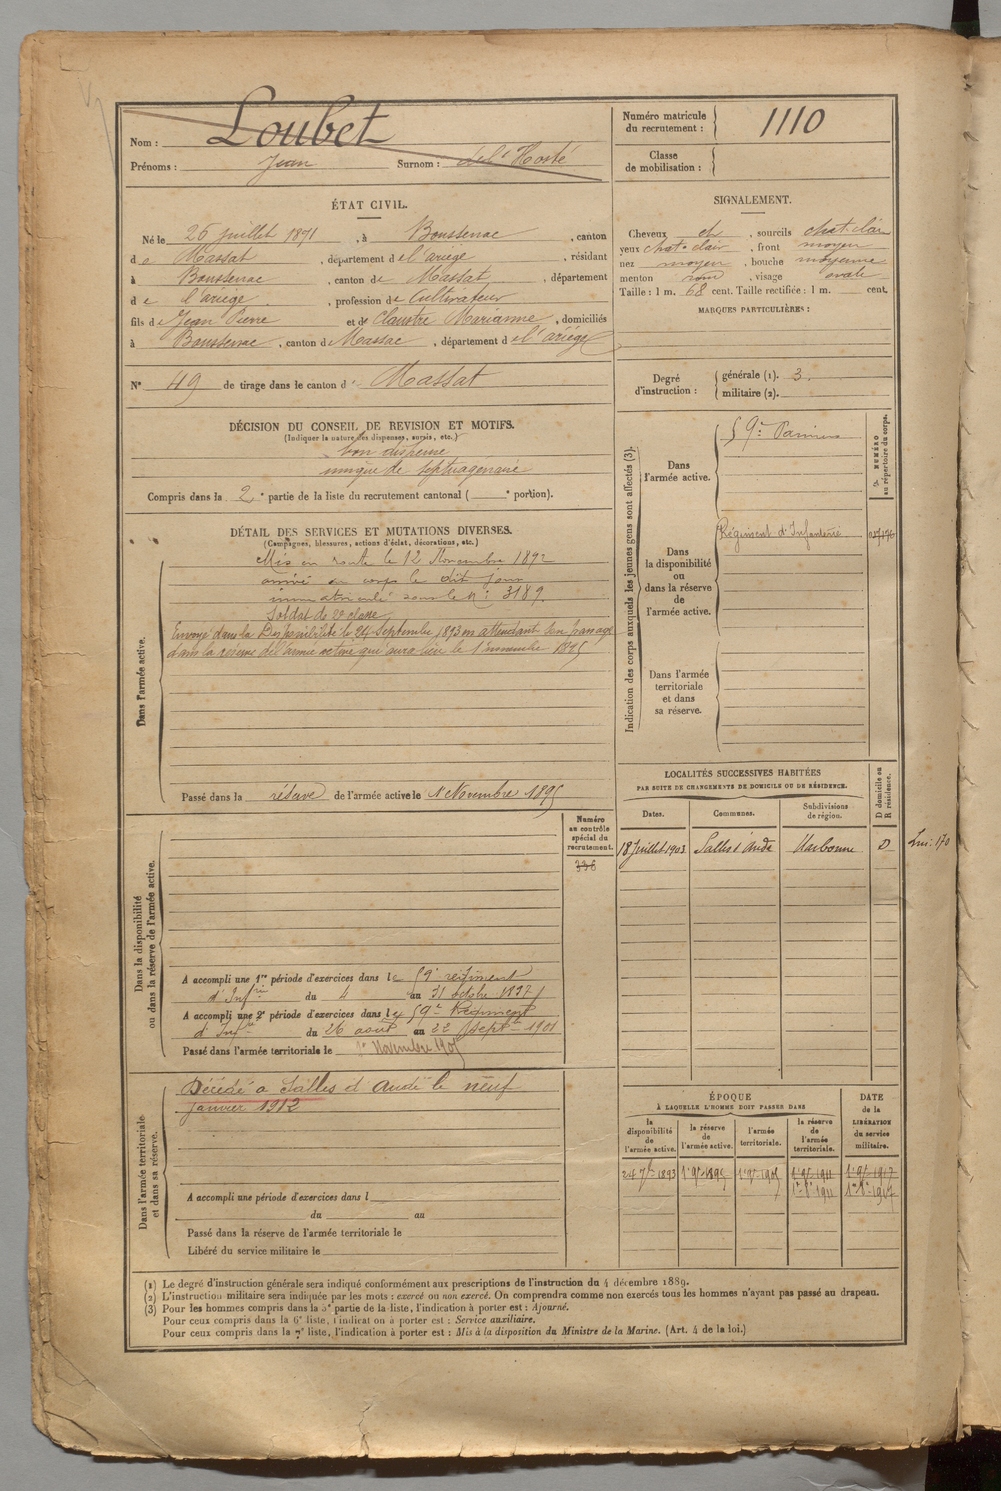 Nom : Loubet
Prénoms : Jean Surnom : del'Hosté
Numéro matricule du recrutement : 1110
Classe de mobilisation :
ÉTAT CIVIL.
Né le 26 juillet 1871, à Boussenac, canton
de Massat, département de l'ariège, résidant
à Boussenac, canton de Massat, département
de l'ariège, profession de Cultivateur
fils de Jean Pierre et de Claustre Marianne, domiciliés
à Boussenac, canton de Massac, département de l'ariège
N° 49 de tirage dans le canton d Massat
DÉCISION DU CONSEIL DE REVISION ET MOTIFS.
(Indiquer la nature des dispenses, sursis, etc.)
bon dispensé
unique de septuagenaire
Compris dans la 2e partie de la liste du recrutement cantonal ( e portion).
SIGNALEMENT.
Cheveux ch, sourcils chat clair
yeux chat-clair, front moyen
nez moyen, bouche moyenne
menton rond, visage ovale
Taille : 1 m. 68 cent. Taille rectifiée : 1 m. cent.
MARQUES PARTICULIÈRES :
Degré d'instruction : générale (1). 3.
militaire (2).
DÉTAIL DES SERVICES ET MUTATIONS DIVERSES.
(Campagnes, blessures, actions d'éclat, décorations, etc.)
Dans l'armée active.
Mis en route le 12 Novembre 1892
arrivé au corps le dit jour
immatriculé sous le n° : 3189.
Soldat de 2e classe
Envoyé dans la Disponibilité le 24 Septembre 1893 en attendant son passage
dans la réserve de l'armée active qui aura lieu le 1er novembre 1895
Passé dans la réserve de l'armée active le 1er Novembre 1895
Indication des corps auxquels les jeunes gens sont affectés (3).
NUMÉRO au répertoire du corps.
Dans l'armée active.
59e Pamiers
Dans la disponibilité ou dans la réserve de l'armée active.
Régiment d'Infanterie
Dans l'armée territoriale et dans sa réserve.
LOCALITÉS SUCCESSIVES HABITÉES
PAR SUITE DE CHANGEMENTS DE DOMICILE OU DE RÉSIDENCE.
Dates. Communes. Subdivisions de région. D domicile ou R résidence.
18 Juillet 1903 Salles d'Aude Narbonne D
Dans la disponibilité ou dans la réserve de l'armée active.
Numéro au contrôle spécial du recrutement.
336
A accompli une 1re période d'exercices dans le 59e regiment
d'Infrie du 4 au 31 octobre 1897
A accompli une 2e période d'exercices dans le 59e Régiment
d'Infie du 26 août au 22 septe 1901
Passé dans l'armée territoriale le 1er Novembre 1905
Dans l'armée territoriale et dans sa réserve.
Décédé à Salles d'Aude le neuf
janvier 1912
A accompli une période d'exercices dans l
du au
Passé dans la réserve de l'armée territoriale le
Libéré du service militaire le
ÉPOQUE
À LAQUELLE L'HOMME DOIT PASSER DANS
la disponibilité de l'armée active. la réserve de l'armée active. l'armée territoriale. la réserve de l'armée territoriale.
DATE de la LIBÉRATION du service militaire.
24 7bre 1893 1er 9bre 1895 1er 9bre 1905 1er 9bre 1911 1er 9bre 1917
(1) Le degré d'instruction générale sera indiqué conformément aux prescriptions de l'instruction du 4 décembre 1889.
(2) L'instruction militaire sera indiquée par les mots : exercé ou non exercé. On comprendra comme non exercés tous les hommes n'ayant pas passé au drapeau.
(3) Pour les hommes compris dans la 5e partie de la liste, l'indication à porter est : Ajourné.
Pour ceux compris dans la 6e liste, l'indication à porter est : Service auxiliaire.
Pour ceux compris dans la 7e liste, l'indication à porter est : Mis à la disposition du Ministre de la Marine. (Art. 4 de la loi.)